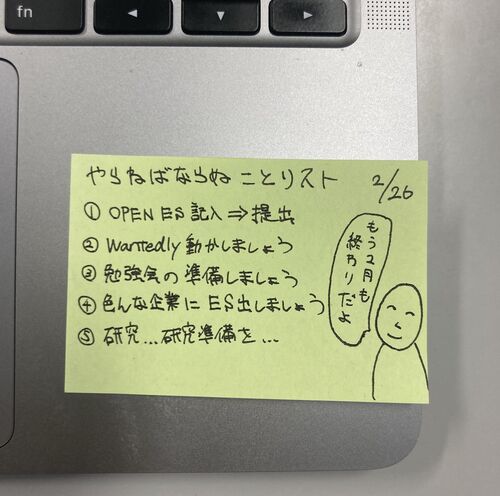 fn
◀
▼
▶
やらねばならぬ ことリスト 2/26
① OPEN ES 記入 ⇒ 提出
② Wantedly 動かしましょう
③ 勉強会の準備しましょう
④ 色んな企業に ES出しましょう
⑤ 研究...研究準備を...
もう2月も
終わりだよ